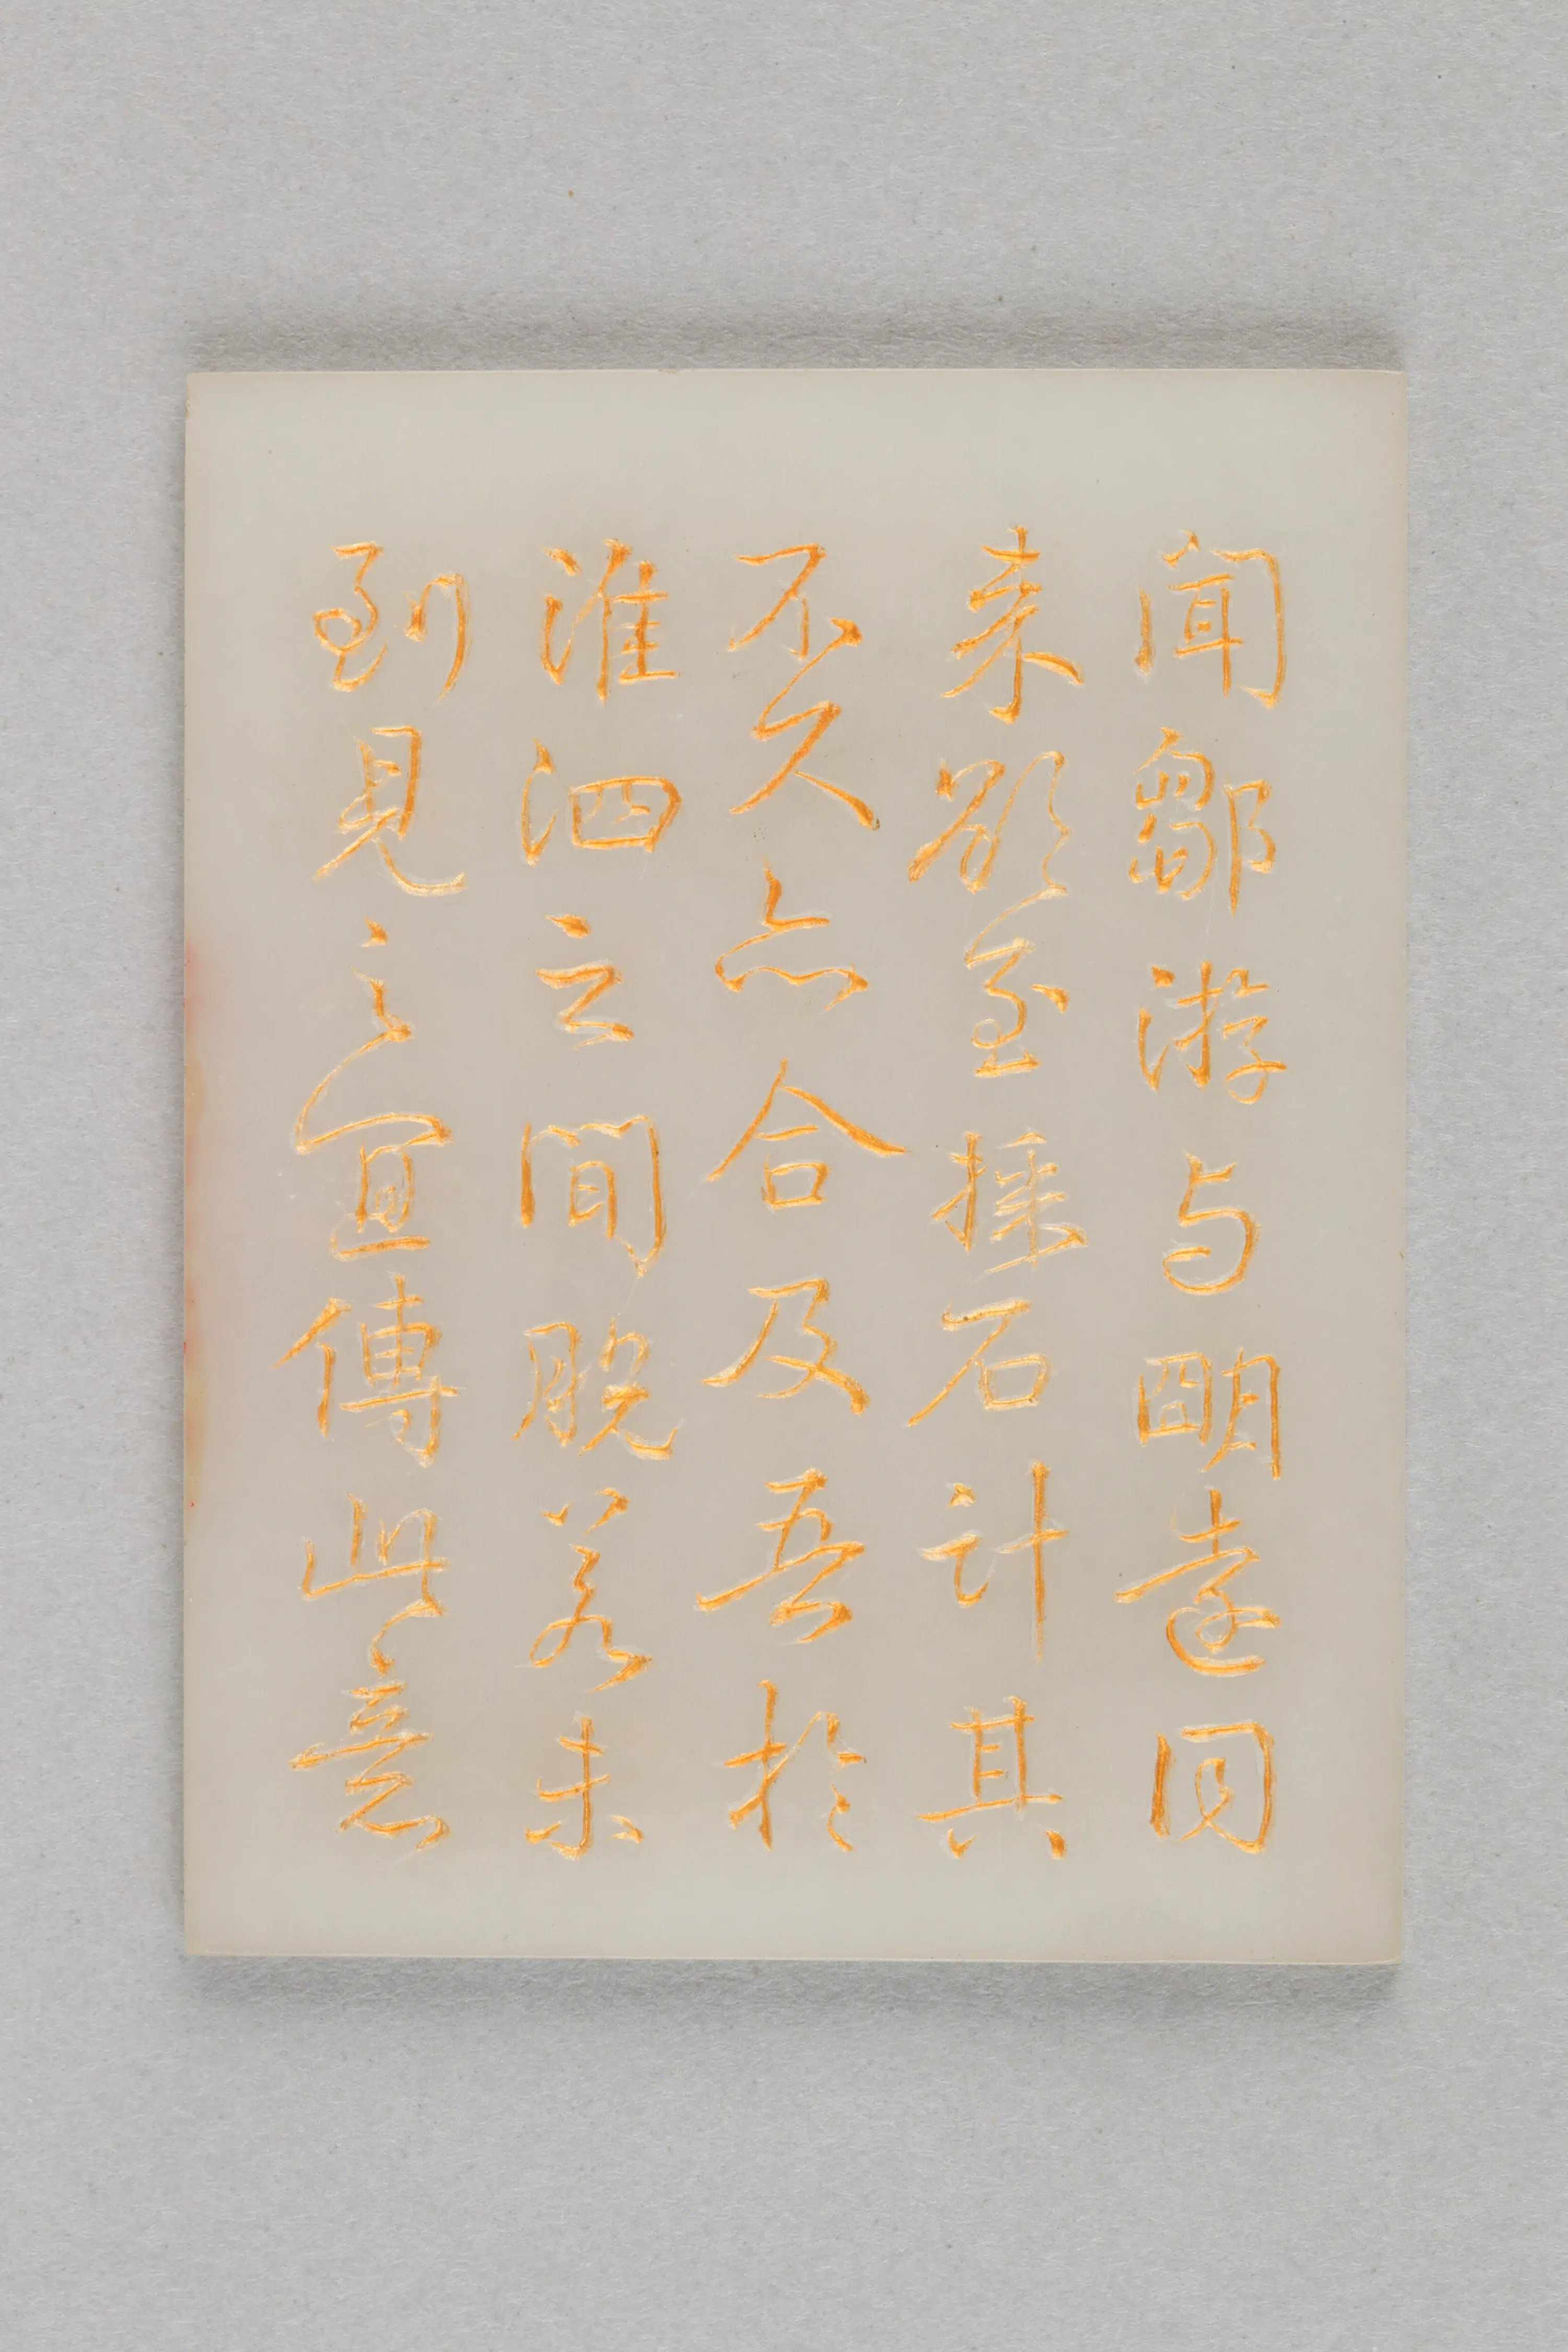 聞鄒游与明遠同
来欲至採石計其
不久亦合及吾於
淮泗之間脱若未
到見之宜傳此意